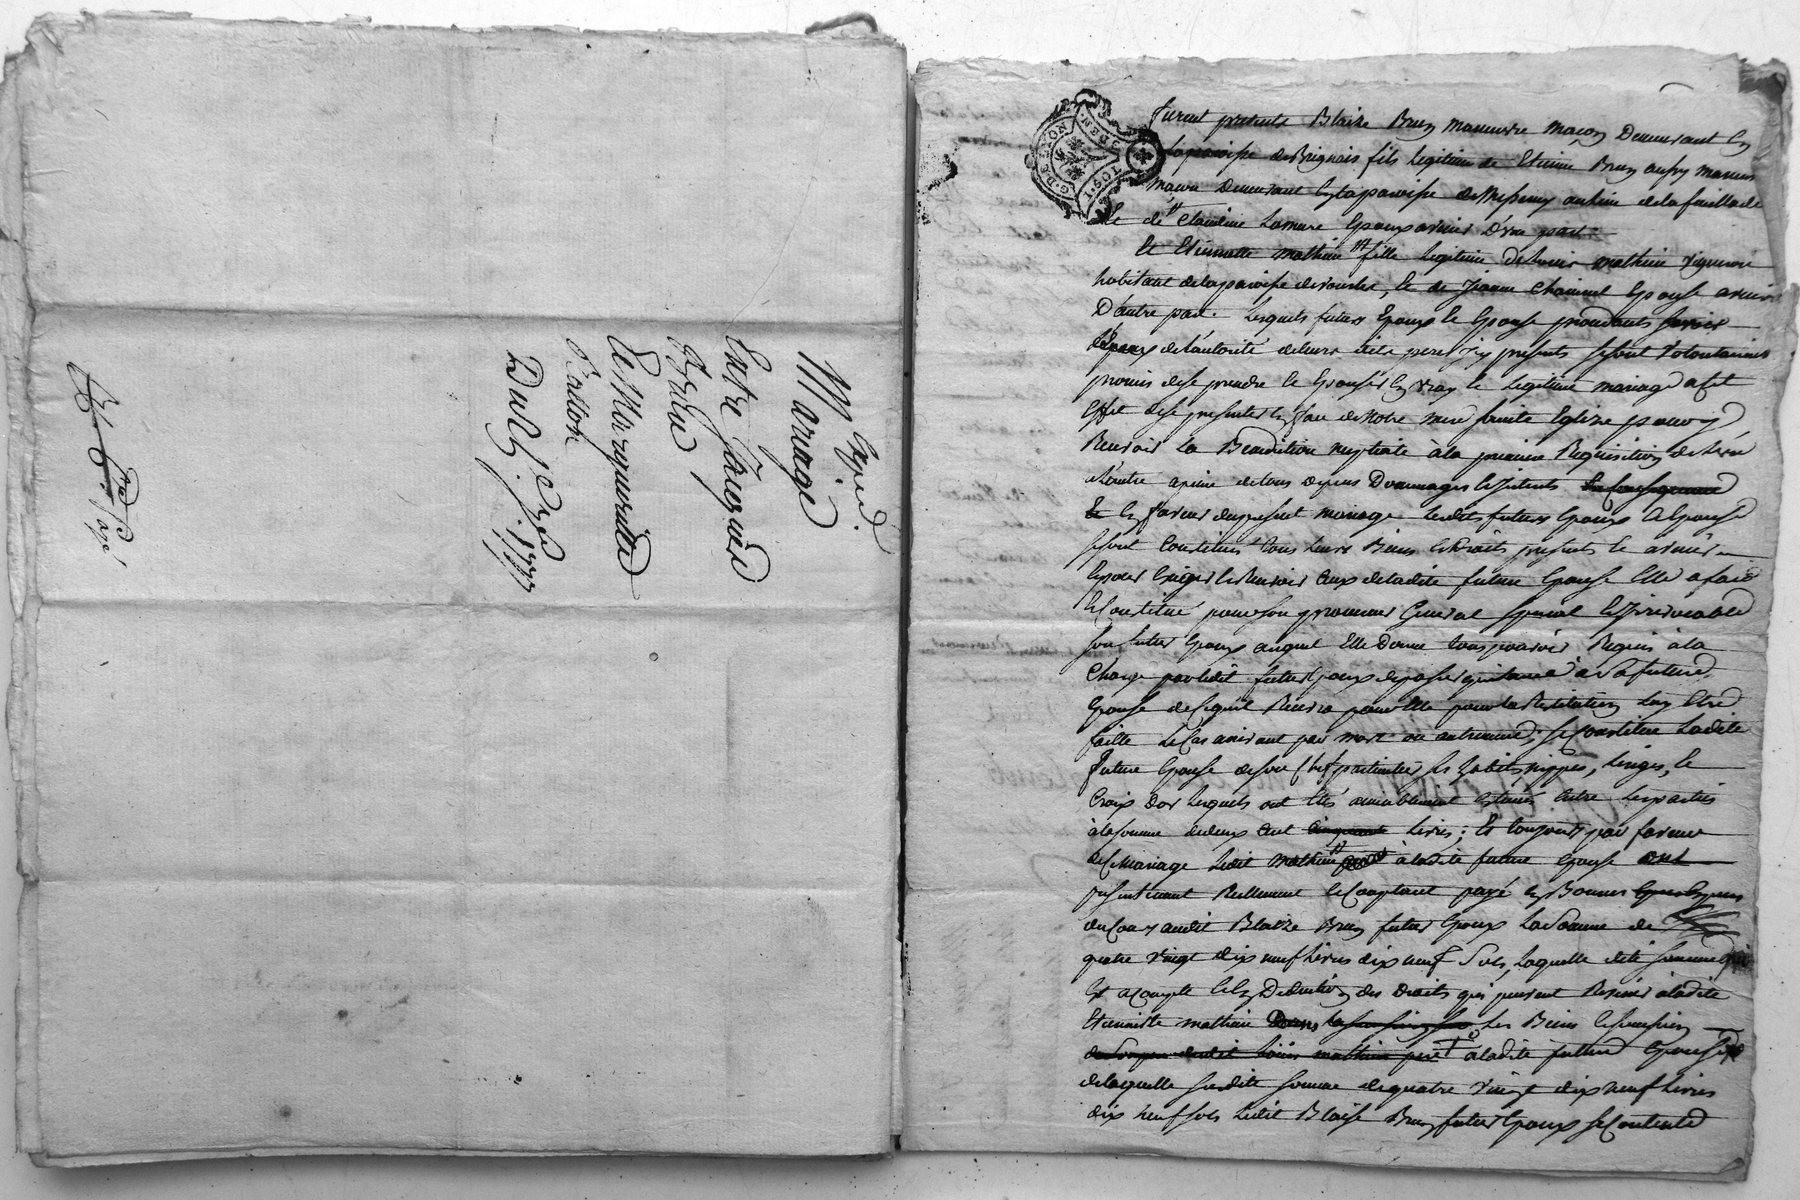 Exped.
Mariage
Entre Jacques
Brun
Et Margueritte
Ratton
Du 25 1777
G. DE LYON
DEN.
Furent presents Blaize Brun manuvre maçon Demeurant En
la paroisse de Brignais fils legitime de Etienne Brun aussy manuvre
maçon Demeurant En la paroisse de Messimy au lieu de la
Et de Claudine Lamure Epoux avenir D'une part
Et Etiennette Mathieu fille legitime de Louis Mathieu vigneron
habitant de la paroisse de vourles, Et de Jeanne Epouse avenir
D'autre part. Lesquels futurs Epoux Et Epouse procedants
de l'autorité de leurs dits peres icy presents se sont volontairement
promis de se prendre Et Epouser En vray Et legitime mariage a cet
Effet de se presenter En face de notre mere sainte Eglize pour y
Recevoir la Benediction nuptiale à la premiere Requisition de l'un
à l'autre a peine de tous depens Dommages Et Interets
En faveur du present mariage lesdits futurs Epoux & Epouse
se sont Constitués tous leurs Biens Et Droits presents Et avenir
Et pour Exiger Et Recevoir Ceux de ladite future Epouse Elle a fait
Et Constitué pour son procureur General special Et Irrevocable
son futur Epoux auquel Elle Donne tous pouvoirs Requis à la
Charge par ledit futur Epoux de passer quittance à sa future
Epouse de Ce qu'il Recevra pour Elle pour la Restitution En Etre
faitte le Cas arrivant par mort ou autrement; se Constitue ladite
future Epouse de son Chef particulier ses habits, nippes, Linges, Et
Croix d'or lesquels ont Etés amiablement Estimés Entre les parties
à la somme de deux Cent cinquante Livres; Et toujours par faveur
de Ce mariage ledit Mathieu à ladite future Epouse
presentement Reellement Et Comptant payé En Bonnes
du Cours audit Blaize Brun futur Epoux La Somme de
quatre vingt dix neuf Livres dix neuf sols, Laquelle dite somme
Est a compte Et En Deduction des Droits qui peuvent Revenir à ladite
Etiennette Mathieu les Biens Et succession
dudit Louis Mathieu pere à ladite future Epouse
de laquelle susdite somme de quatre vingt dix neuf Livres
dix neuf sols ledit Blaise Brun futur Epoux se Contente